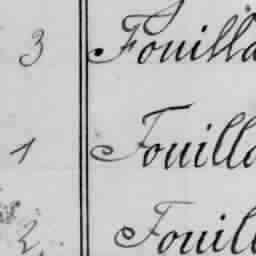 3 Fouilla
1 Fouilla
2 Fouill